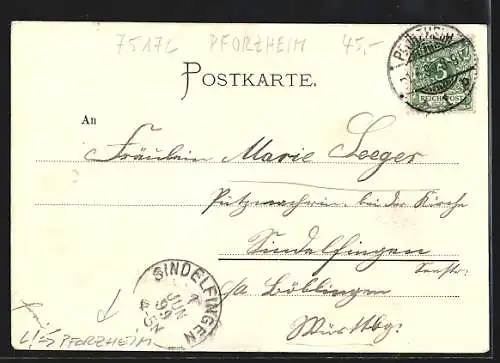 75172 PFORZHEIM 45,-
POSTKARTE.
PFORZHEIM
5
REICHSPOST
An
Fräulein Marie Seeger
Putzmacherin, bei der Kirche
Sindelfingen
Seestr:
o/a Böblingen
Württbg:
SINDELFINGEN
JUN
99
4-5N
L/S PFORZHEIM